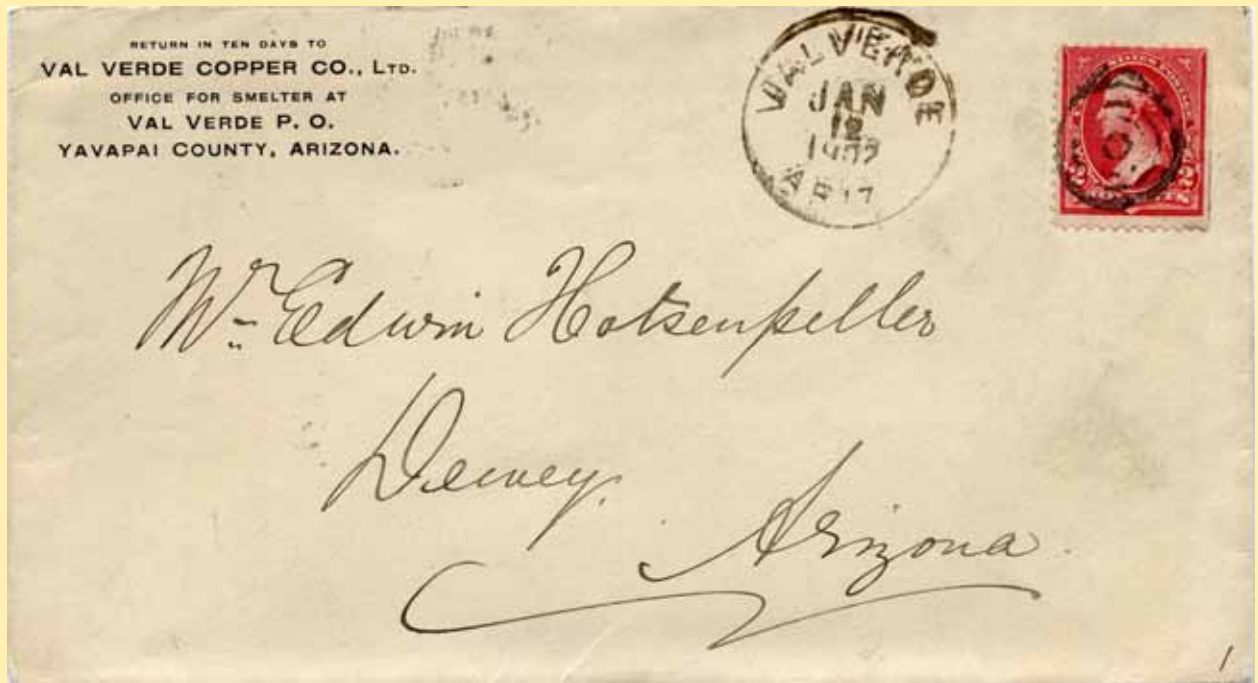 RETURN IN TEN DAYS TO
VAL VERDE COPPER CO., LTD.
OFFICE FOR SMELTER AT
VAL VERDE P. O.
YAVAPAI COUNTY, ARIZONA.
VALVERDE
JAN
12
1902
ARIZ
Mr. Edwin Hotsenpeller
Dewey,
Arizona.
1